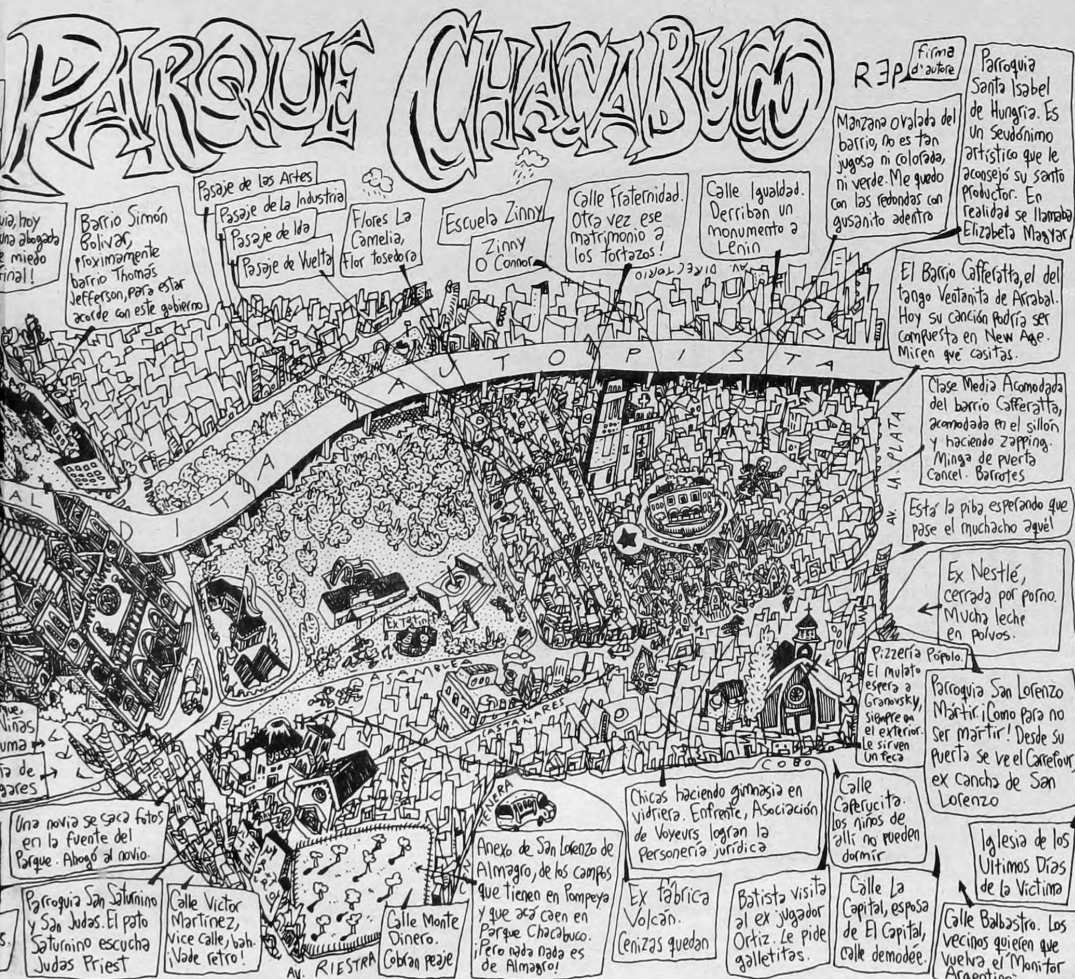 PARQUE CHACABUCO
REP
firma
d'autore
Parroquia
Santa Isabel
de Hungria. Es
un seudónimo
artistico que le
aconsejó su santo
productor. En
realidad se llamaba
Elizabeta Magyar
Manzana ovalada del
barrio, no es tan
jugosa ni colorada,
ni verde. Me quedo
con las redondas con
gusanito adentro
Calle Igualdad.
Derriban un
monumento a
Lenin
Calle Fraternidad.
Otra vez ese
matrimonio a
los Tortazos!
Escuela Zinny
Zinny
O Connor
Flores La
Camelia,
Flor tosedora
Pasaje de las Artes
Pasaje de la Industria
Pasaje de Ida
Pasaje de Vuelta
Barrio Simón
Bolivar,
Proximamente
barrio Thomas
Jefferson, para estar
acorde con este gobierno
hoy
una abogada
miedo
final!
AV. DIRECTORIO
El Barrio Cafferatta, el del
tango Ventanita de Arrabal.
Hoy su canción podría ser
compuesta en New Age.
Miren qué casitas.
AUTOPISTA
Clase Media Acomodada
del barrio Cafferatta,
acomodada en el sillón
y haciendo zapping.
Minga de puerta
Cancel. Barrotes
AV. LA PLATA
Está la piba esperando que
pase el muchacho aquél
Ex Nestlé,
cerrada por porno.
Mucha leche
en polvos.
ASAMBLEA
Pizzería Pópolo.
El mulato
espera a
Granovsky,
siempre en
el exterior.
Le sirven
un feca
Parroquia San Lorenzo
Mártir ¡Como para no
ser mártir! Desde su
puerta se ve el Carrefour,
ex cancha de San
Lorenzo
Una novia se saca fotos
en la fuente del
Parque. Abogó al novio.
Chicas haciendo gimnasia en
vidriera. Enfrente, Asociación
de Voyeurs logran la
Personería jurídica
Calle
Caperucita.
Los niños de
allí no pueden
dormir
Iglesia de los
Ultimos Días
de la Victima
Parroquia San Saturnino
y San Judas. El pato
Saturnino escucha
Judas Priest
Calle Victor
Martínez,
Vice calle, bah.
¡Vade retro!
Calle Monte
Dinero.
Cobran peaje
AV. RIESTRA
Anexo de San Lorenzo de
Almagro, de los campos
que tienen en Pompeya
y que acá caen en
Parque Chacabuco.
¡Pero nada nada es
de Almagro!
Ex fábrica
Volcán.
Cenizas quedan
Batista visita
al ex jugador
Ortiz. Le pide
galletitas.
Calle La
Capital, esposa
de El Capital,
calle demodée.
Calle Balbastro. Los
vecinos quieren que
vuelva el Monitor
Argentino